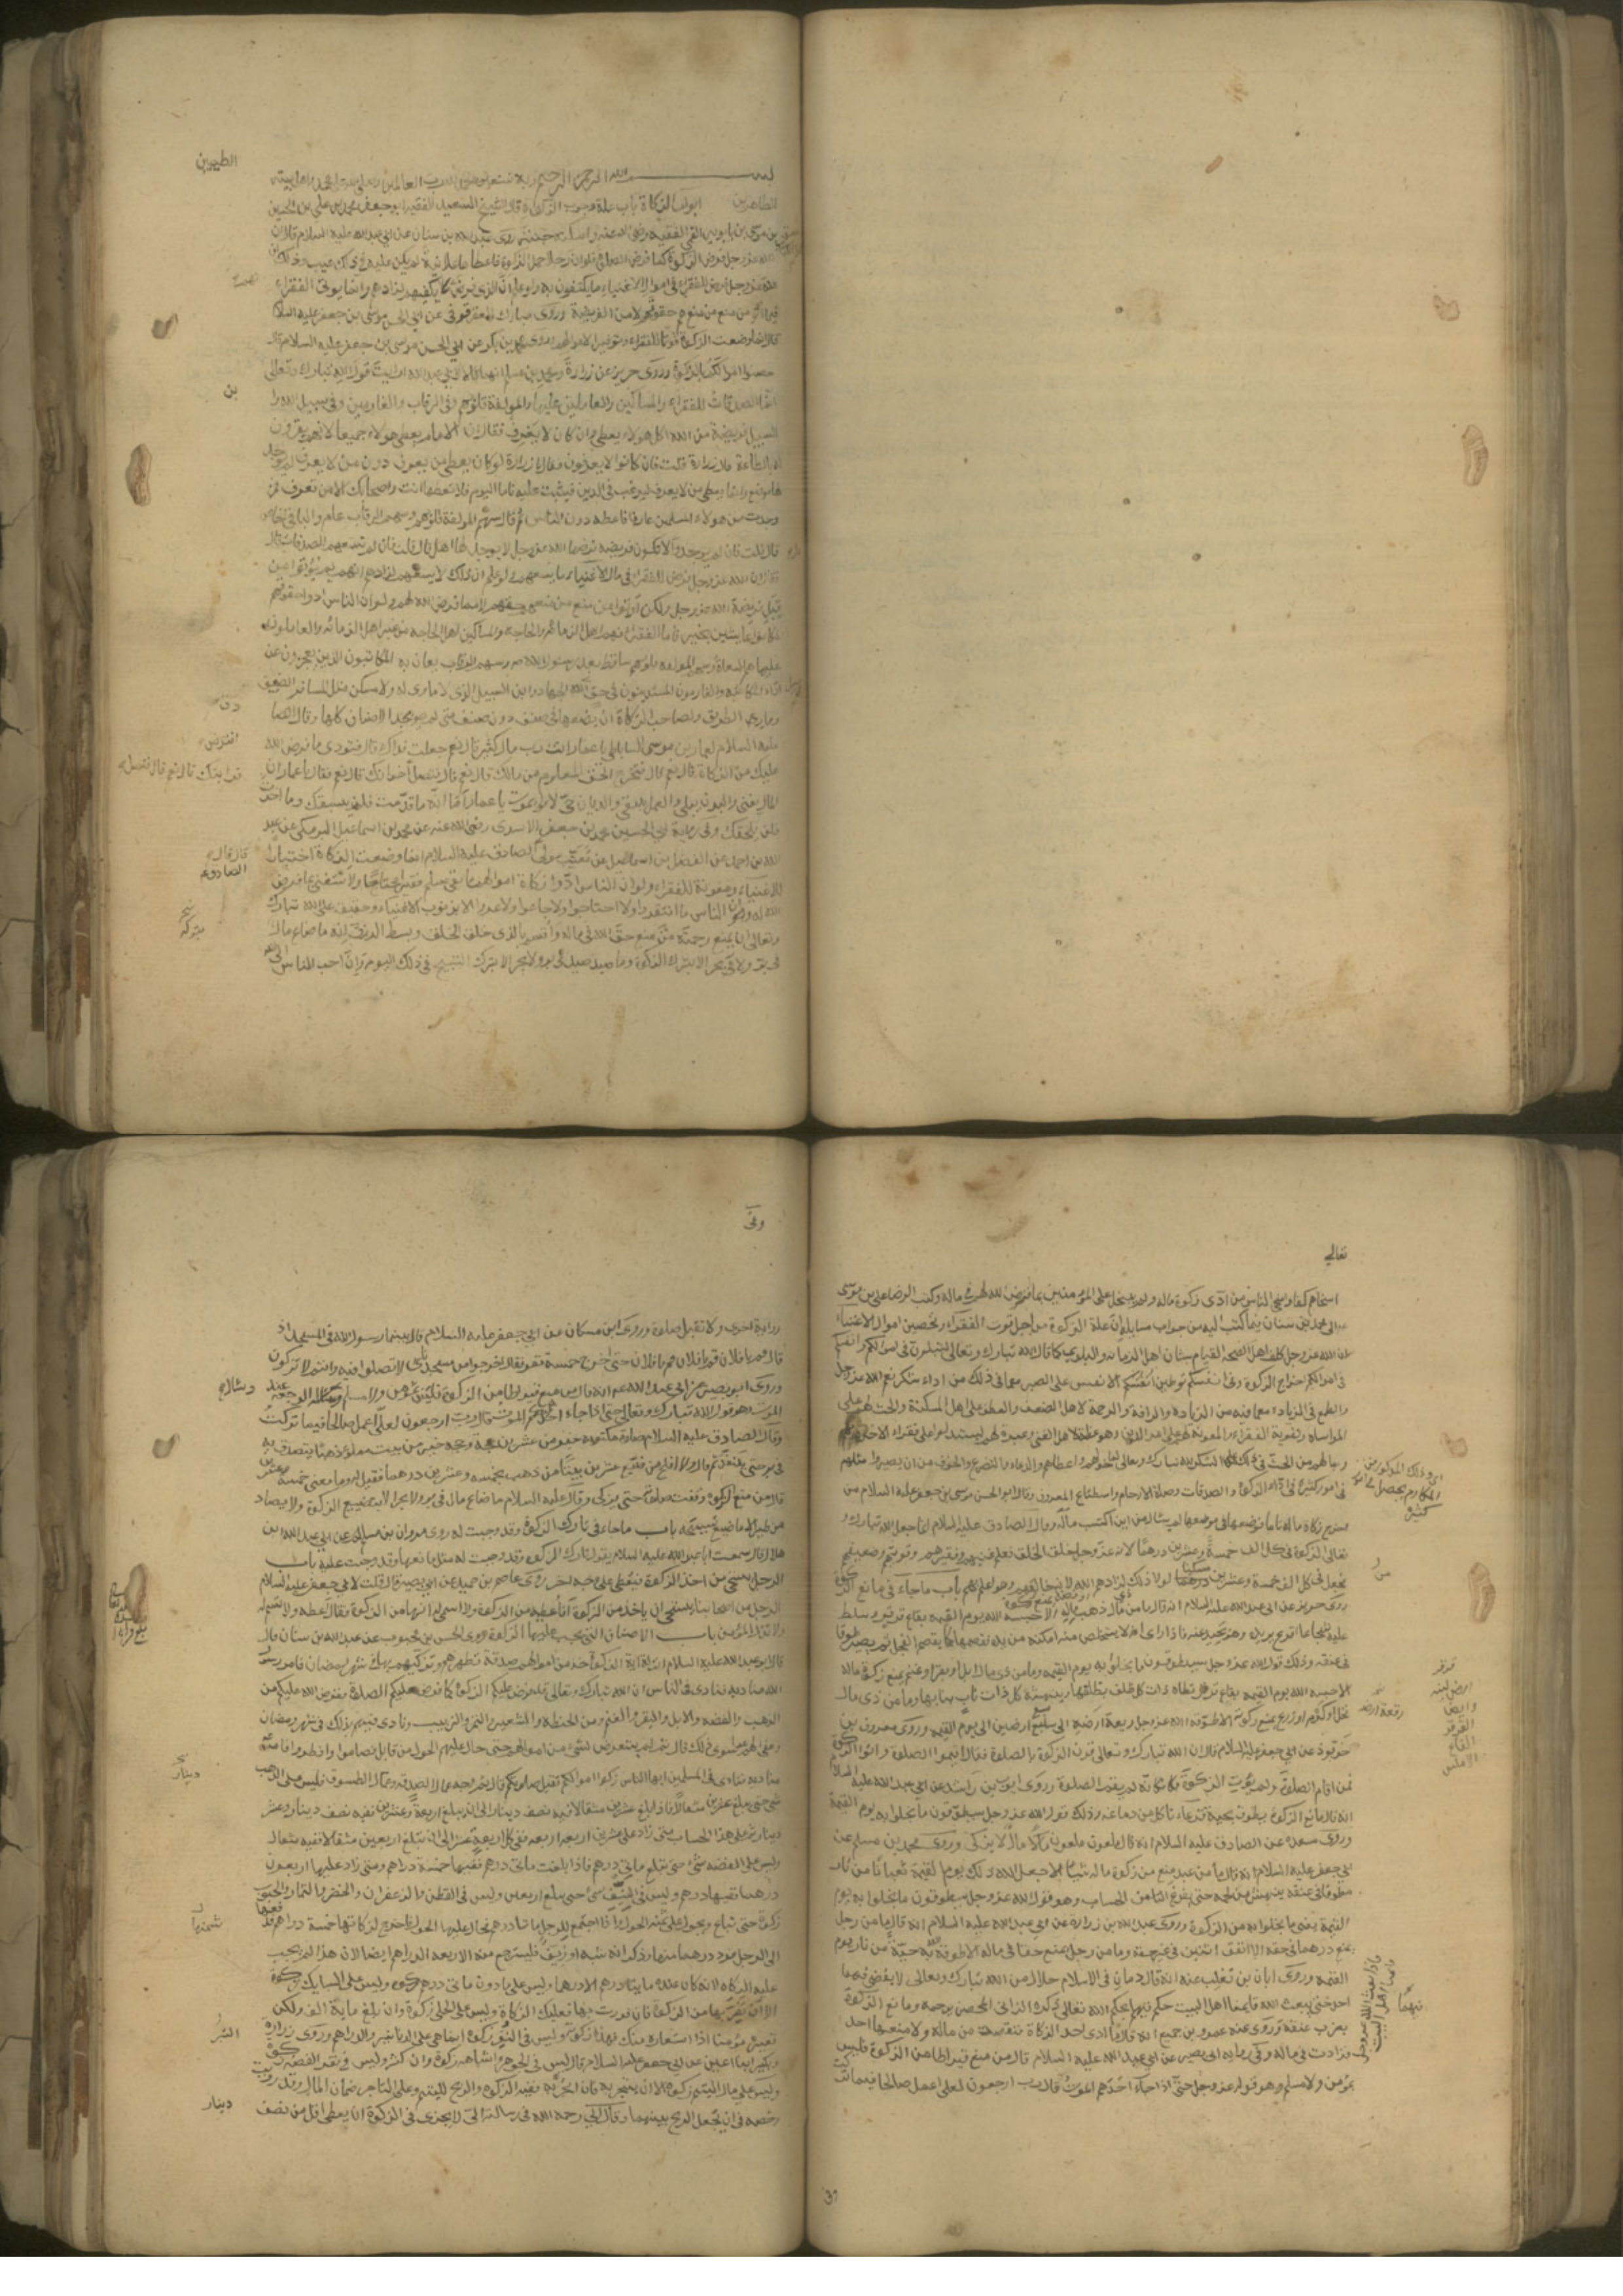 الطيبين
بســـم الله الرحمن الرحيم وبه نستعين الحمد لله رب العالمين وصلى الله على محمد واهل بيته
الطاهرين ابواب الزكاة باب علة وجوب الزكاة قال الشيخ السعيد الفقيه ابو جعفر محمد بن علي بن الحسين
بن موسى بن بابويه القمي الفقيه رضي الله عنه روى عبد الله بن سنان عن ابي عبد الله عليه السلام قال ان
الله عز وجل فرض الزكوة كما فرض الصلوة فلو ان رجلا حمل الزكوة فاعطاها علانية لم يكن عليه في ذلك عيب وذلك ان
الله عز وجل فرض للفقراء في اموال الاغنياء ما يكتفون به ولو علم ان الذي فرض لهم لا يكفيهم لزادهم وانما يؤتى الفقراء
فيما اتوا من منع من منعهم حقوقهم لا من الفريضة وروى مبارك العقرقوفي عن ابي الحسن موسى بن جعفر عليه السلام
قال انما وضعت الزكوة قوتا للفقراء وتوفيرا لاموالهم وروى موسى بن بكر عن ابي الحسن موسى بن جعفر عليه السلام قال
حصنوا اموالكم بالزكوة وروى حريز عن زرارة ومحمد بن مسلم انهما قالا لابي عبد الله ارايت قول الله تبارك وتعالى
بن
انما الصدقات للفقراء والمساكين والعاملين عليها والمؤلفة قلوبهم وفي الرقاب والغارمين وفي سبيل الله وا
السبيل فريضة من الله اكل هولاء يعطى وان كان لا يعرف فقال ان الامام يعطي هولاء جميعا لانهم يقرون
له بالطاعة قال زرارة قلت فان كانوا لا يعرفون فقال يا زرارة لو كان يعطي من يعرف دون من لا يعرف لم يوجد
لها موضع وانما يعطي من لا يعرف ليرغب في الدين فيثبت عليه فاما اليوم فلا تعطها انت واصحابك الا من تعرف فمن
وجدت من هولاء المسلمين عارفا فاعطه دون الناس ثم قال سهم المؤلفة قلوبهم وسهم الرقاب عام والباقي خاص
قال قلت فان لم يوجدوا قال لا تكون فريضة فرضها الله عز وجل لا يوجد لها اهل قال قلت فان لم تسعهم الصدقات قال
فقال ان الله عز وجل فرض للفقراء في مال الاغنياء ما يسعهم ولو علم ان ذلك لا يسعهم لزادهم انهم لم يؤتوا من
قبل فريضة الله عز وجل ولكن اوتوا من منع من منعهم حقهم لا مما فرض الله لهم ولو ان الناس ادوا حقوقهم
لكانوا عايشين بخير فاما الفقراء فهم اهل الزمانة والحاجة والمساكين اهل الحاجة من غير اهل الزمانة والعاملون
عليها هم السعاة وسهم المؤلفة قلوبهم ساقط بعد رسول الله ص وسهم الرقاب يعان به المكاتبون الذين يعجزون عن
اداء المكاتبة والغارمون المستدينون في حق وسبيل الله الجهاد وابن السبيل الذي لا ماوى له ولا مسكن مثل المسافر الضعيف
ومار الطريق ولصاحب الزكاة ان يضعها في صنف دون صنف متى لم يجد الاصناف كلها وقال الصا
دق
عليه السلام لعمار بن موسى الساباطي يا عمار انت رب مال كثير قال نعم جعلت فداك قال فتؤدي ما فرض الله
افترض
عليك من الزكاة قال نعم قال فتخرج الحق المعلوم من مالك قال نعم قال فتصل اخوانك قال نعم فقال يا عمار ان
قرابتك قال نعم قال فتصل
المال يفنى والبدن يبلى والعمل يبقى والديان حي لا يموت يا عمار اما انه ما قدمت فلن يسبقك وما اخرت
فلن يلحقك وفي رواية ابي الحسين محمد بن جعفر الاسدي رضي الله عنه عن محمد بن اسماعيل البرمكي عن عبد
الله بن احمد عن الفضل بن اسماعيل عن معتب مولى الصادق عليه السلام انما وضعت الزكاة اختبارا
قال قال
الصادق ع
للاغنياء ومعونة للفقراء ولو ان الناس ادوا زكاة اموالهم ما بقي مسلم فقيرا محتاجا ولاستغنى بما فرض
الله له وان الناس ما افتقروا ولا احتاجوا ولا جاعوا ولا عروا الا بذنوب الاغنياء وحقيق على الله تبارك
وتعالى ان يمنع رحمته من منع حق الله في ماله واقسم بالذي خلق الخلق وبسط الرزق انه ما ضاع مال
في بر ولا في بحر الا بترك الزكوة وما صيد صيد في بر ولا بحر الا بتركه التسبيح في ذلك اليوم وان احب الناس الى الله
تعالى
اسخاهم كفا واسخى الناس من ادى زكوة ماله ولم يبخل على المؤمنين بما فرض الله لهم في ماله وكتب الرضا علي بن موسى
الى محمد بن سنان فيما كتب اليه من جواب مسايله ان علة الزكوة من اجل قوت الفقراء وتحصين اموال الاغنياء
لان الله عز وجل كلف اهل الصحة القيام بشان اهل الزمانة والبلوى كما قال الله تبارك وتعالى لتبلون في اموالكم وانفسكم
في اموالكم اخراج الزكوة وفي انفسكم توطين الانفس على الصبر مع ما في ذلك من اداء شكر نعم الله عز وجل
والطمع في الزيادة مع ما فيه من الزيادة والرافة والرحمة لاهل الضعف والعطف على اهل المسكنة والحث لهم على
المواساة وتقوية الفقراء والمعونة لهم على امر الدين وهو عظة لاهل الغنى وعبرة لهم ليستدلوا على فقراء الاخرة بهم
وما لهم من الحث في ذلك على الشكر لله تبارك وتعالى لما خولهم واعطاهم والدعاء والتضرع والخوف من ان يصيروا مثلهم
في امور كثيرة في اداء الزكوة والصدقات وصلة الارحام واصطناع المعروف وقال ابو الحسن موسى بن جعفر عليه السلام من
اخرج زكاة ماله تاما فوضعها في موضعها لم يسئل من اين اكتسب ماله وقال الصادق عليه السلام انما جعل الله تبارك و
تعالى الزكوة في كل الف خمسة وعشرين درهما لانه عز وجل خلق الخلق فعلم غنيهم وفقيرهم وقويهم وضعيفهم
فجعل من كل الف خمسة وعشرين مسكينا لولا ذلك لزادهم الله لانه خالقهم وهو اعلم بهم باب ما جاء في مانع الزكوة
روى حريز عن ابي عبد الله عليه السلام انه قال ما من ذي مال ذهب او فضة يمنع زكوة ماله الا حبسه الله يوم القيمة بقاع قرقر وسلط
عليه شجاعا اقرع يريده وهو يحيد عنه فاذا راى انه لا يتخلص منه امكنه من يده فقضمها كما يقضم الفجل ثم يصير طوقا
في عنقه وذلك قول الله عز وجل سيطوقون ما بخلوا به يوم القيمة وما من ذي مال ابل او بقر او غنم يمنع زكوة ماله
الا حبسه الله يوم القيمة بقاع قرقر تطأه كل ذات ظلف بظلفها وينهشه كل ذات ناب بنابها وما من ذي مال
نخل او كرم او زرع يمنع زكوته الا طوقه الله عز وجل ريعة ارضه الى سبع ارضين الى يوم القيمة وروى معروف بن
خربوذ عن ابي جعفر عليه السلام قال ان الله تبارك وتعالى قرن الزكوة بالصلوة فقال اقيموا الصلوة واتوا الزكوة
فمن اقام الصلوة ولم يؤت الزكوة فكانه لم يقم الصلوة وروى ايوب بن راشد عن ابي عبد الله عليه السلام
انه قال مانع الزكوة يطوق بحية قرعاء تاكل من دماغه وذلك قول الله عز وجل سيطوقون ما بخلوا به يوم القيمة
وروى مسعدة عن الصادق عليه السلام انه قال ملعون ملعون مال لا يزكى وروى محمد بن مسلم عن
ابي جعفر عليه السلام انه قال ما من عبد منع من زكوة ماله شيئا الا جعل الله ذلك يوم القيمة ثعبانا من نار
مطوقا في عنقه ينهش من لحمه حتى يفرغ من الحساب وهو قول الله عز وجل سيطوقون ما بخلوا به يوم
القيمة يعني ما بخلوا به من الزكوة وروى عبيد الله بن زرارة عن ابي عبد الله عليه السلام انه قال ما من رجل
يمنع درهما في حقه الا انفق اثنين في غير حقه وما من رجل يمنع حقا في ماله الا طوقه الله به حية من نار يوم
القيمة وروى ابان بن تغلب عنه انه قال دمان في الاسلام حلال من الله تبارك وتعالى لا يقضي فيهما
احد حتى يبعث الله قايمنا اهل البيت حكم فيهما بحكم الله تعالى ذكره الزاني المحصن يرجمه ومانع الزكوة
يضرب عنقه وروى عنه عمرو بن جميع انه قال ما ادى احد الزكاة فنقصت من ماله ولا منعها احد
فزادت في ماله وفي رواية ابي بصير عن ابي عبد الله عليه السلام قال من منع قيراطا من الزكوة فليس
بمؤمن ولا مسلم وهو قوله عز وجل حتى اذا جاء احدهم الموت قال رب ارجعون لعلي اعمل صالحا فيما تركت
وفي
رواية اخرى ولا تقبل له صلوة وروى ابن مسكان عن ابي جعفر عليه السلام قال بينما رسول الله في المسجد اذ
قال قم يا فلان قم يا فلان قم يا فلان حتى اخرج خمسة نفر فقال اخرجوا من مسجدنا لا تصلوا فيه وانتم لا تزكون
وروى ابو بصير عن ابي عبد الله ع م انه قال من منع قيراطا من الزكوة فليس بمؤمن ولا مسلم وسئل الرجعة عند
الموت وهو قول الله تبارك وتعالى حتى اذا جاء احدهم الموت قال رب ارجعون لعلي اعمل صالحا فيما تركت
وقال الصادق عليه السلام صلوة مكتوبة خير من عشرين حجة وحجة خير من بيت مملوء ذهبا يتصدق به
في بر حتى ينفد ثم قال ولا افلح من ضيع عشرين بيتا من ذهب بخمسة وعشرين درهما فقيل له وما معنى خمسة وعشرين
قال من منع الزكوة وقفت صلوته حتى يزكي وقال عليه السلام ما ضاع مال في بر ولا بحر الا بتضييع الزكوة ولا يصاد
من الطير الا ما ضيع تسبيحه باب ما جاء في تارك الزكوة وقد وجبت له روى مروان بن مسلم عن عبد الله ابن
هلال قال سمعت ابا عبد الله عليه السلام يقول تارك الزكوة وقد وجبت له مثل مانعها وقد وجبت عليه باب
الرجل يستحي من اخذ الزكوة فيعطى على وجه اخر روى عاصم بن حميد عن ابي بصير قال قلت لابي جعفر عليه السلام
الرجل من اصحابنا يستحي ان ياخذ من الزكوة فاعطيه من الزكوة ولا اسمي له انها من الزكوة فقال اعطه ولا تسم له
ولا تذل المؤمن باب الاصناف التي تجب عليها الزكوة روى الحسن بن محبوب عن عبد الله بن سنان قال
قال ابو عبد الله عليه السلام انزلت اية الزكوة خذ من اموالهم صدقة تطهرهم وتزكيهم بها في شهر رمضان فامر رسول
الله مناديه فنادى في الناس ان الله تبارك وتعالى قد فرض عليكم الزكوة كما فرض عليكم الصلوة ففرض الله عليكم من
الذهب والفضة والابل والبقر والغنم ومن الحنطة والشعير والتمر والزبيب ونادى فيهم بذلك في شهر رمضان
وعفى لهم عما سوى ذلك قال ثم لم يتعرض لشيء من اموالهم حتى حال عليهم الحول من قابل فصاموا وافطروا فامر
مناديه فنادى في المسلمين ايها الناس زكوا اموالكم تقبل صلوتكم قال ثم وجه عمال الصدقة وعمال الطسوق فليس على الذهب
شيء حتى يبلغ عشرين مثقالا فاذا بلغ عشرين مثقالا ففيه نصف دينار الى ان يبلغ اربعة وعشرين ففيه نصف دينار وعشر
دينار ثم على هذا الحساب متى زاد على عشرين اربعة اربعة ففي كل اربعة عشر الى ان تبلغ اربعين مثقالا ففيه مثقال
وليس على الفضة شيء حتى تبلغ مائتي درهم فاذا بلغت مائتي درهم ففيها خمسة دراهم ومتى زاد عليها اربعون
درهما ففيها درهم وليس في النيف شيء حتى يبلغ اربعين وليس في القطن والزعفران والخضر والثمار والحبوب
زكوة حتى تباع ويحول على ثمنه الحول واذا اجتمع للرجل مائتا درهم فحال عليها الحول فاخرج لزكاتها خمسة دراهم فدفعها
الى الرجل فرد درهما منها وذكر انه شبه او زيف فليسترجع منه الاربعة الدراهم ايضا لان هذا لم يجب
عليه الزكاة لانه كان عنده مايتا درهم الا درهما وليس على ما دون مائتي درهم زكوة وليس على السبايك زكوة
الا ان تفر بها من الزكوة فان فررت بها فعليك الزكاة وليس على الحلي زكوة وان بلغ ماية الف ولكن
تعيره مؤمنا اذا استعاره منك فهذا زكوته وليس في النقر زكوة انما هي على الدنانير والدراهم وروى زرارة
وبكير ابنا اعين عن ابي جعفر عليه السلام قال ليس في الجوهر واشباهه زكوة وان كثر وليس في نقر الفضة زكوة
وليس على مال اليتيم زكوة الا ان يتجر به فان اتجر به ففيه الزكوة والربح لليتيم وعلى التاجر ضمان المال وقد رويت
رخصة في ان يجعل الربح بينهما وقال ابي رحمه الله في رسالته الي لا يجزي في الزكوة ان يعطى اقل من نصف
دينار